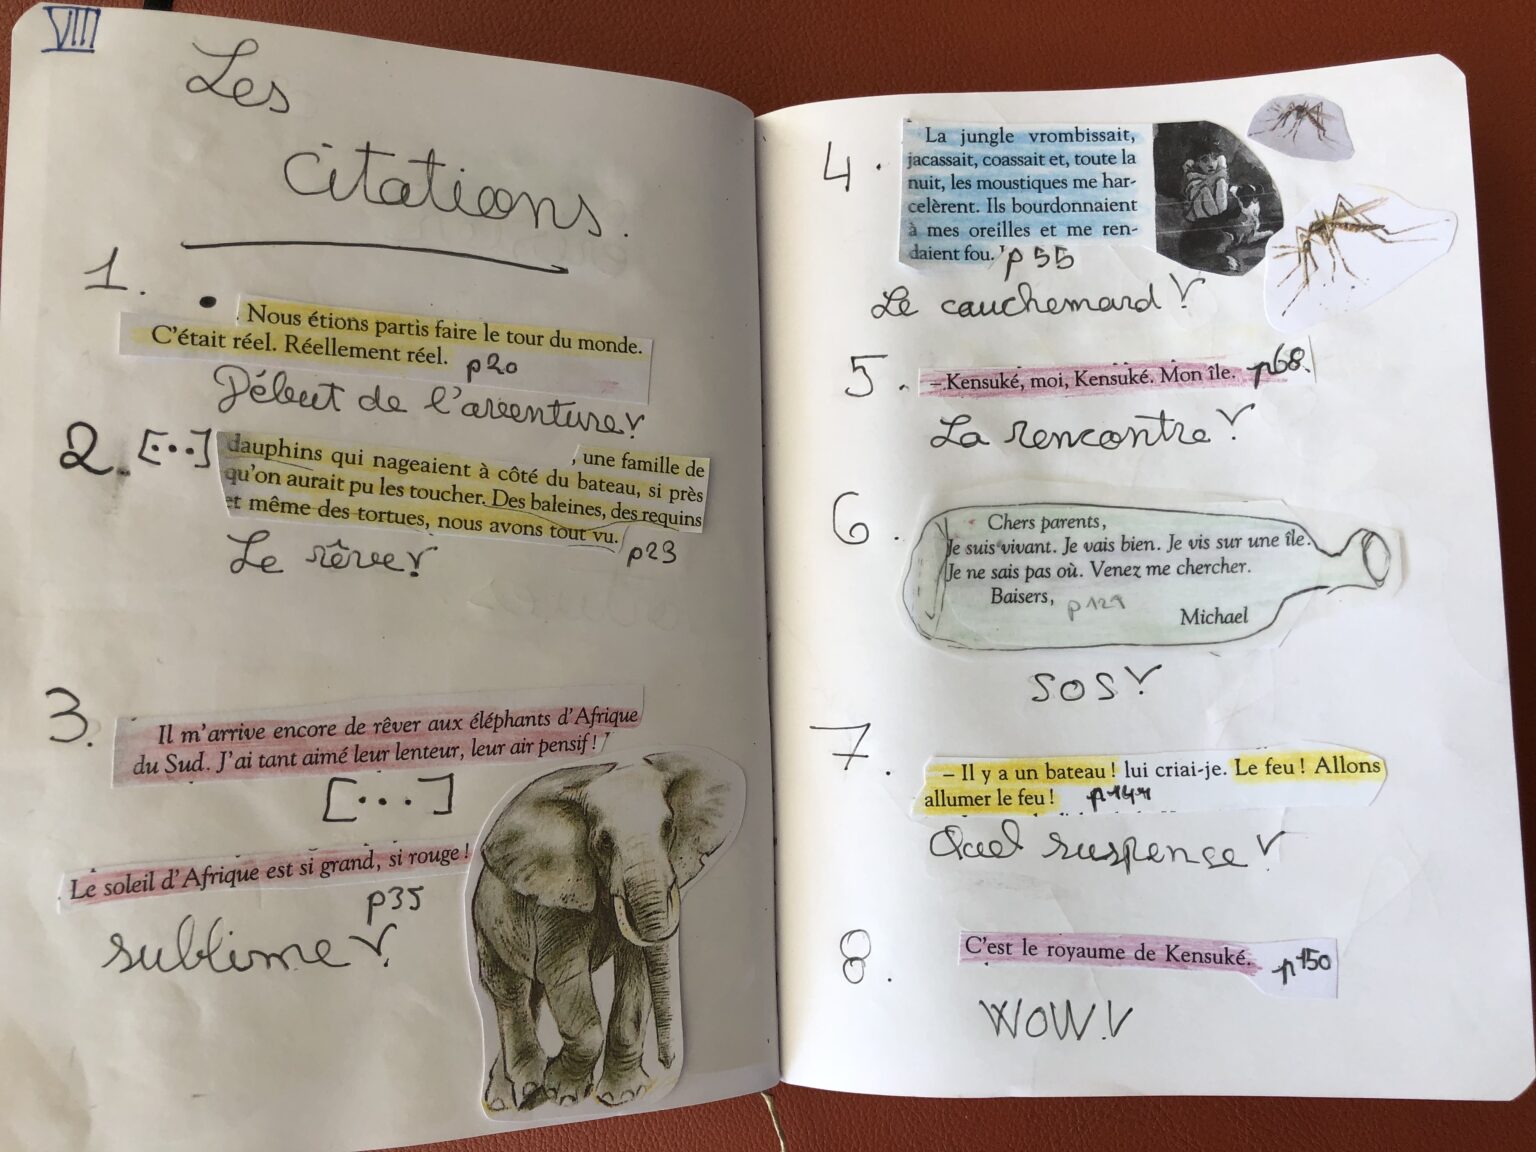 VIII
Les
citations.
1.
• Nous étions partis faire le tour du monde.
C'était réel. Réellement réel. p20
Début de l'aventure
2. [...] , une famille de
dauphins qui nageaient à côté du bateau, si près
qu'on aurait pu les toucher. Des baleines, des requins
et même des tortues, nous avons tout vu.
p23
Le rêve
3. Il m'arrive encore de rêver aux éléphants d'Afrique
du Sud. J'ai tant aimé leur lenteur, leur air pensif !
[...]
Le soleil d'Afrique est si grand, si rouge !
p35
sublime
4. La jungle vrombissait,
jacassait, coassait et, toute la
nuit, les moustiques me har-
celèrent. Ils bourdonnaient
à mes oreilles et me ren-
daient fou. p55
Le cauchemard
5. – Kensuké, moi, Kensuké. Mon île. p68.
La rencontre
6. Chers parents,
Je suis vivant. Je vais bien. Je vis sur une île.
Je ne sais pas où. Venez me chercher.
Baisers,
Michael
SOS
7. – Il y a un bateau ! lui criai-je. Le feu ! Allons
allumer le feu !
Quel suspense
8. C'est le royaume de Kensuké. p150
WOW